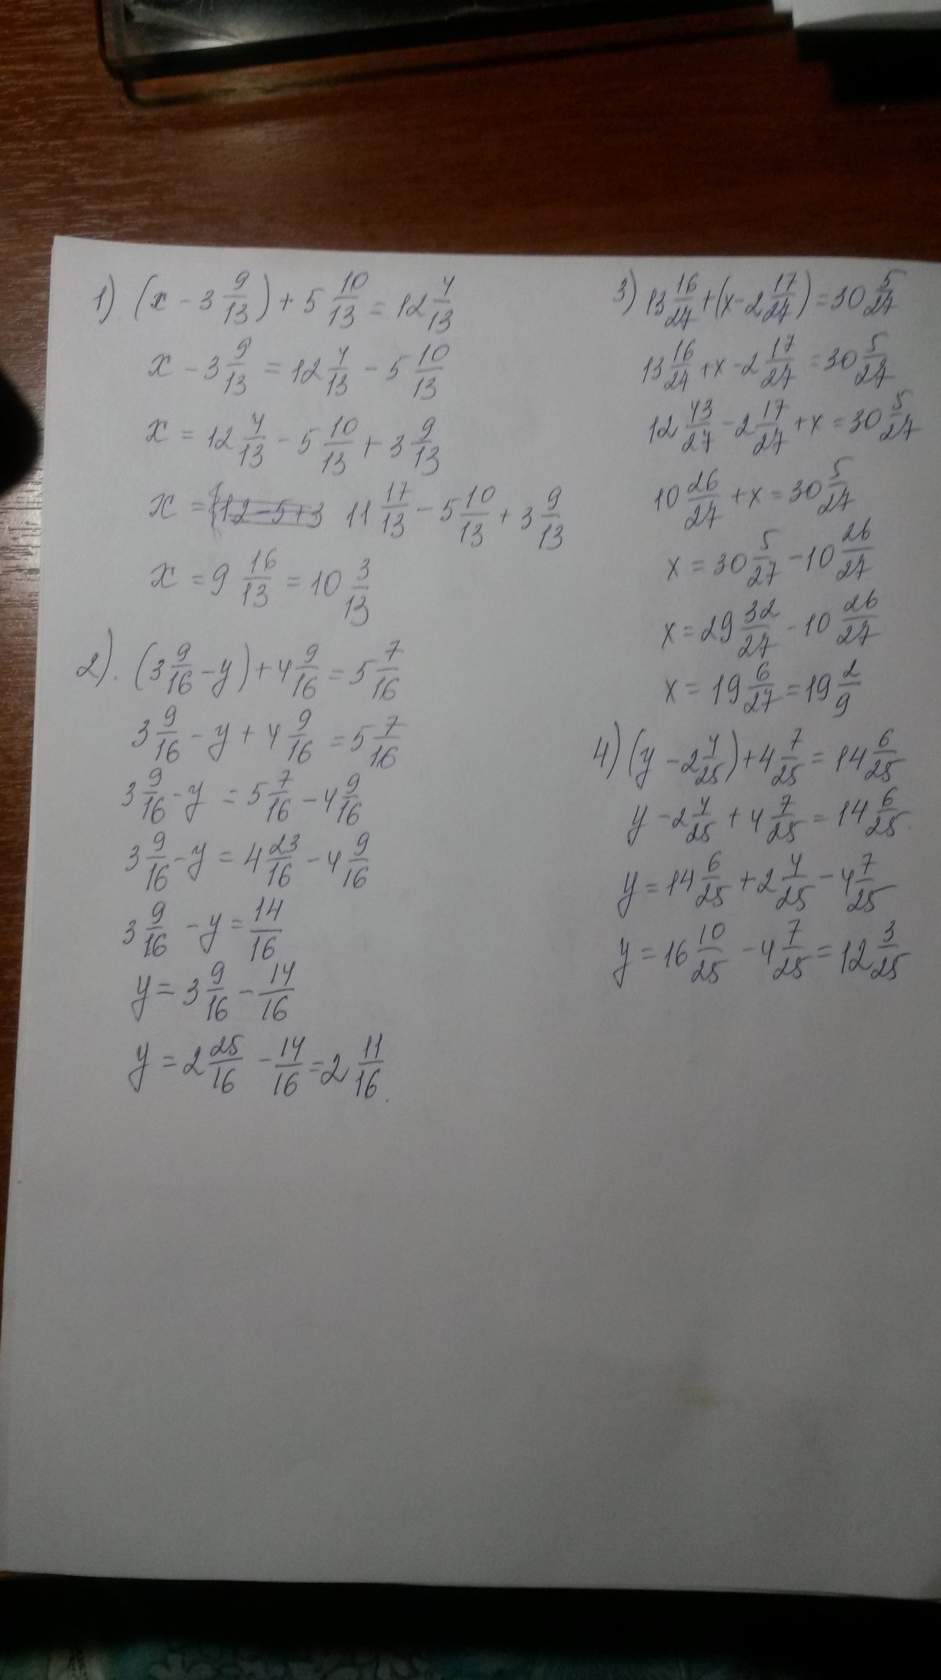 1) (x - 3 9/13) + 5 10/13 = 12 4/13
x - 3 9/13 = 12 4/13 - 5 10/13
x = 12 4/13 - 5 10/13 + 3 9/13
x = 11 17/13 - 5 10/13 + 3 9/13
x = 9 16/13 = 10 3/13
2). (3 9/16 - y) + 4 9/16 = 5 7/16
3 9/16 - y + 4 9/16 = 5 7/16
3 9/16 - y = 5 7/16 - 4 9/16
3 9/16 - y = 4 23/16 - 4 9/16
3 9/16 - y = 14/16
y = 3 9/16 - 14/16
y = 2 25/16 - 14/16 = 2 11/16.
3) 13 16/27 + (x - 2 17/27) = 30 5/27
13 16/27 + x - 2 17/27 = 30 5/27
12 43/27 - 2 17/27 + x = 30 5/27
10 26/27 + x = 30 5/27
x = 30 5/27 - 10 26/27
x = 29 32/27 - 10 26/27
x = 19 6/27 = 19 2/9
4) (y - 2 4/25) + 4 7/25 = 14 6/25
y - 2 4/25 + 4 7/25 = 14 6/25.
y = 14 6/25 + 2 4/25 - 4 7/25
y = 16 10/25 - 4 7/25 = 12 3/25